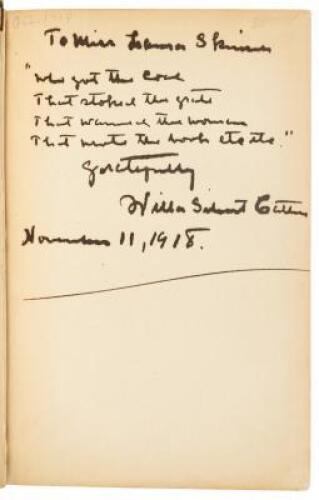 Oct. 1918
To Miss Skinner
"Who got the coal
That stoked the grate
That warmed the woman
That wrote the book etc etc."
Gratefully
Willa Sibert Cather
November 11, 1918.